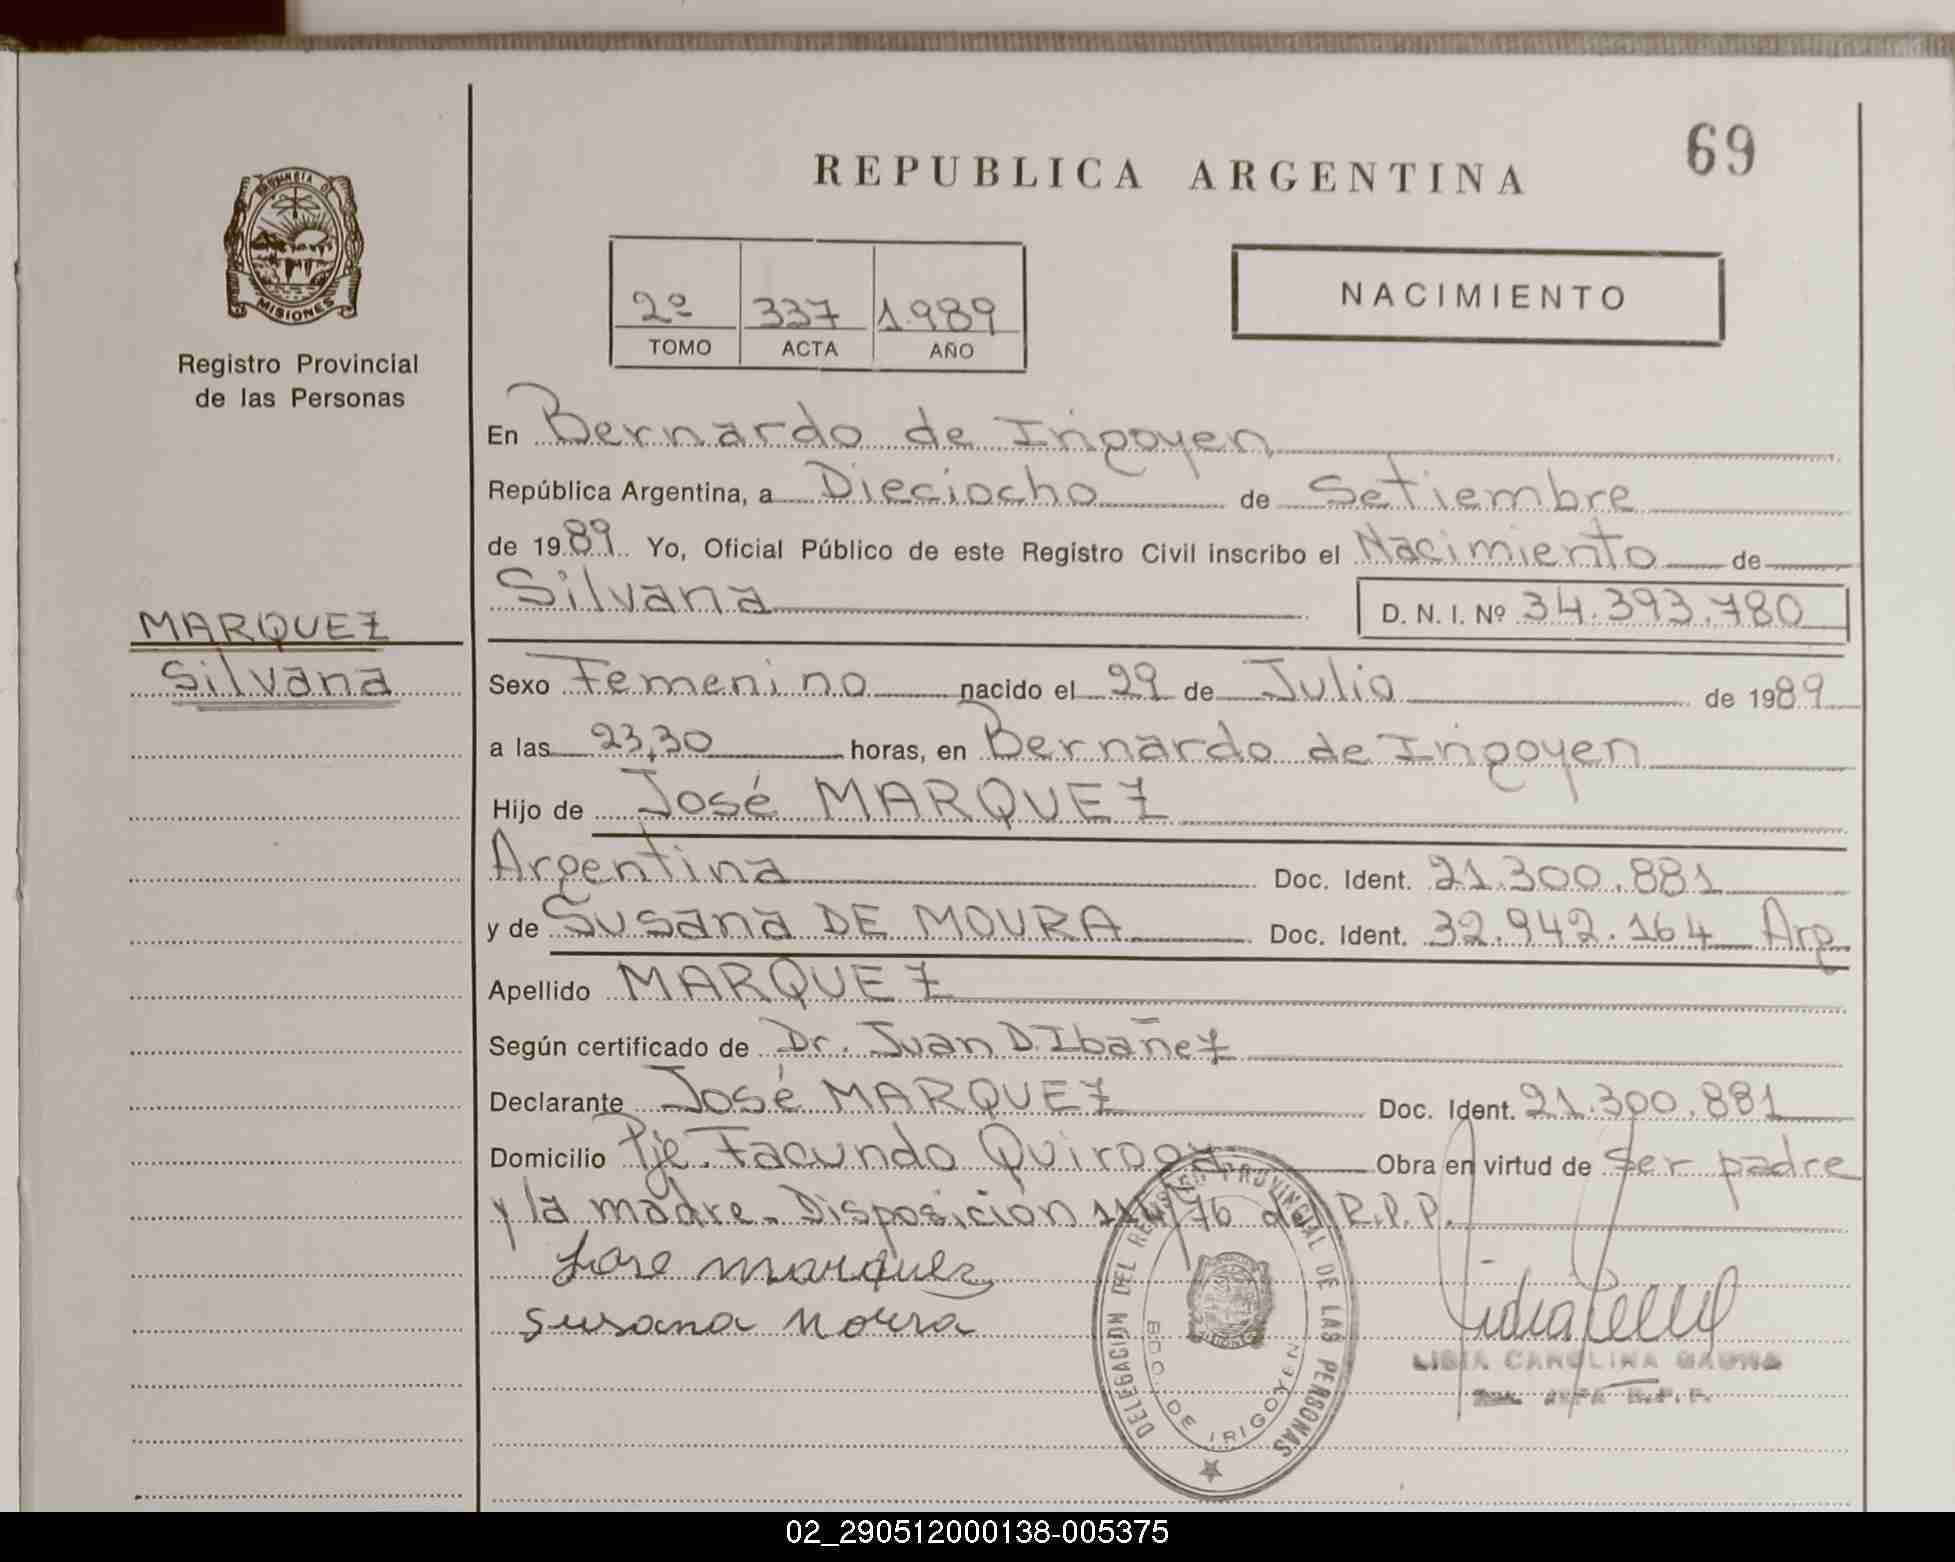 69
REPUBLICA ARGENTINA
PROVINCIA DE
MISIONES
Registro Provincial
de las Personas
2º 337 1.989
TOMO ACTA AÑO
NACIMIENTO
En Bernardo de Irigoyen
República Argentina, a Dieciocho de Setiembre
de 1989 Yo, Oficial Público de este Registro Civil inscribo el Nacimiento de
Silvana D. N. I. Nº 34.393.780
MARQUEZ
Silvana
Sexo Femenino nacido el 29 de Julio de 1989
a las 23,30 horas, en Bernardo de Irigoyen
Hijo de José MARQUEZ
Argentina Doc. Ident. 21.300.881
y de Susana DE MOURA Doc. Ident. 32.942.164 Arg
Apellido MARQUEZ
Según certificado de Dr. Juan D. Ibañez
Declarante José MARQUEZ Doc. Ident. 21.300.881
Domicilio Pje. Facundo Quiroga Obra en virtud de Ser padre
y la madre. Disposición 114/76 del R.P.P.
Jose marquez
Susana Moura
DELEGACION DEL REGISTRO PROVINCIAL DE LAS PERSONAS
BDO. DE IRIGOYEN
CAROLINA
02_290512000138-005375